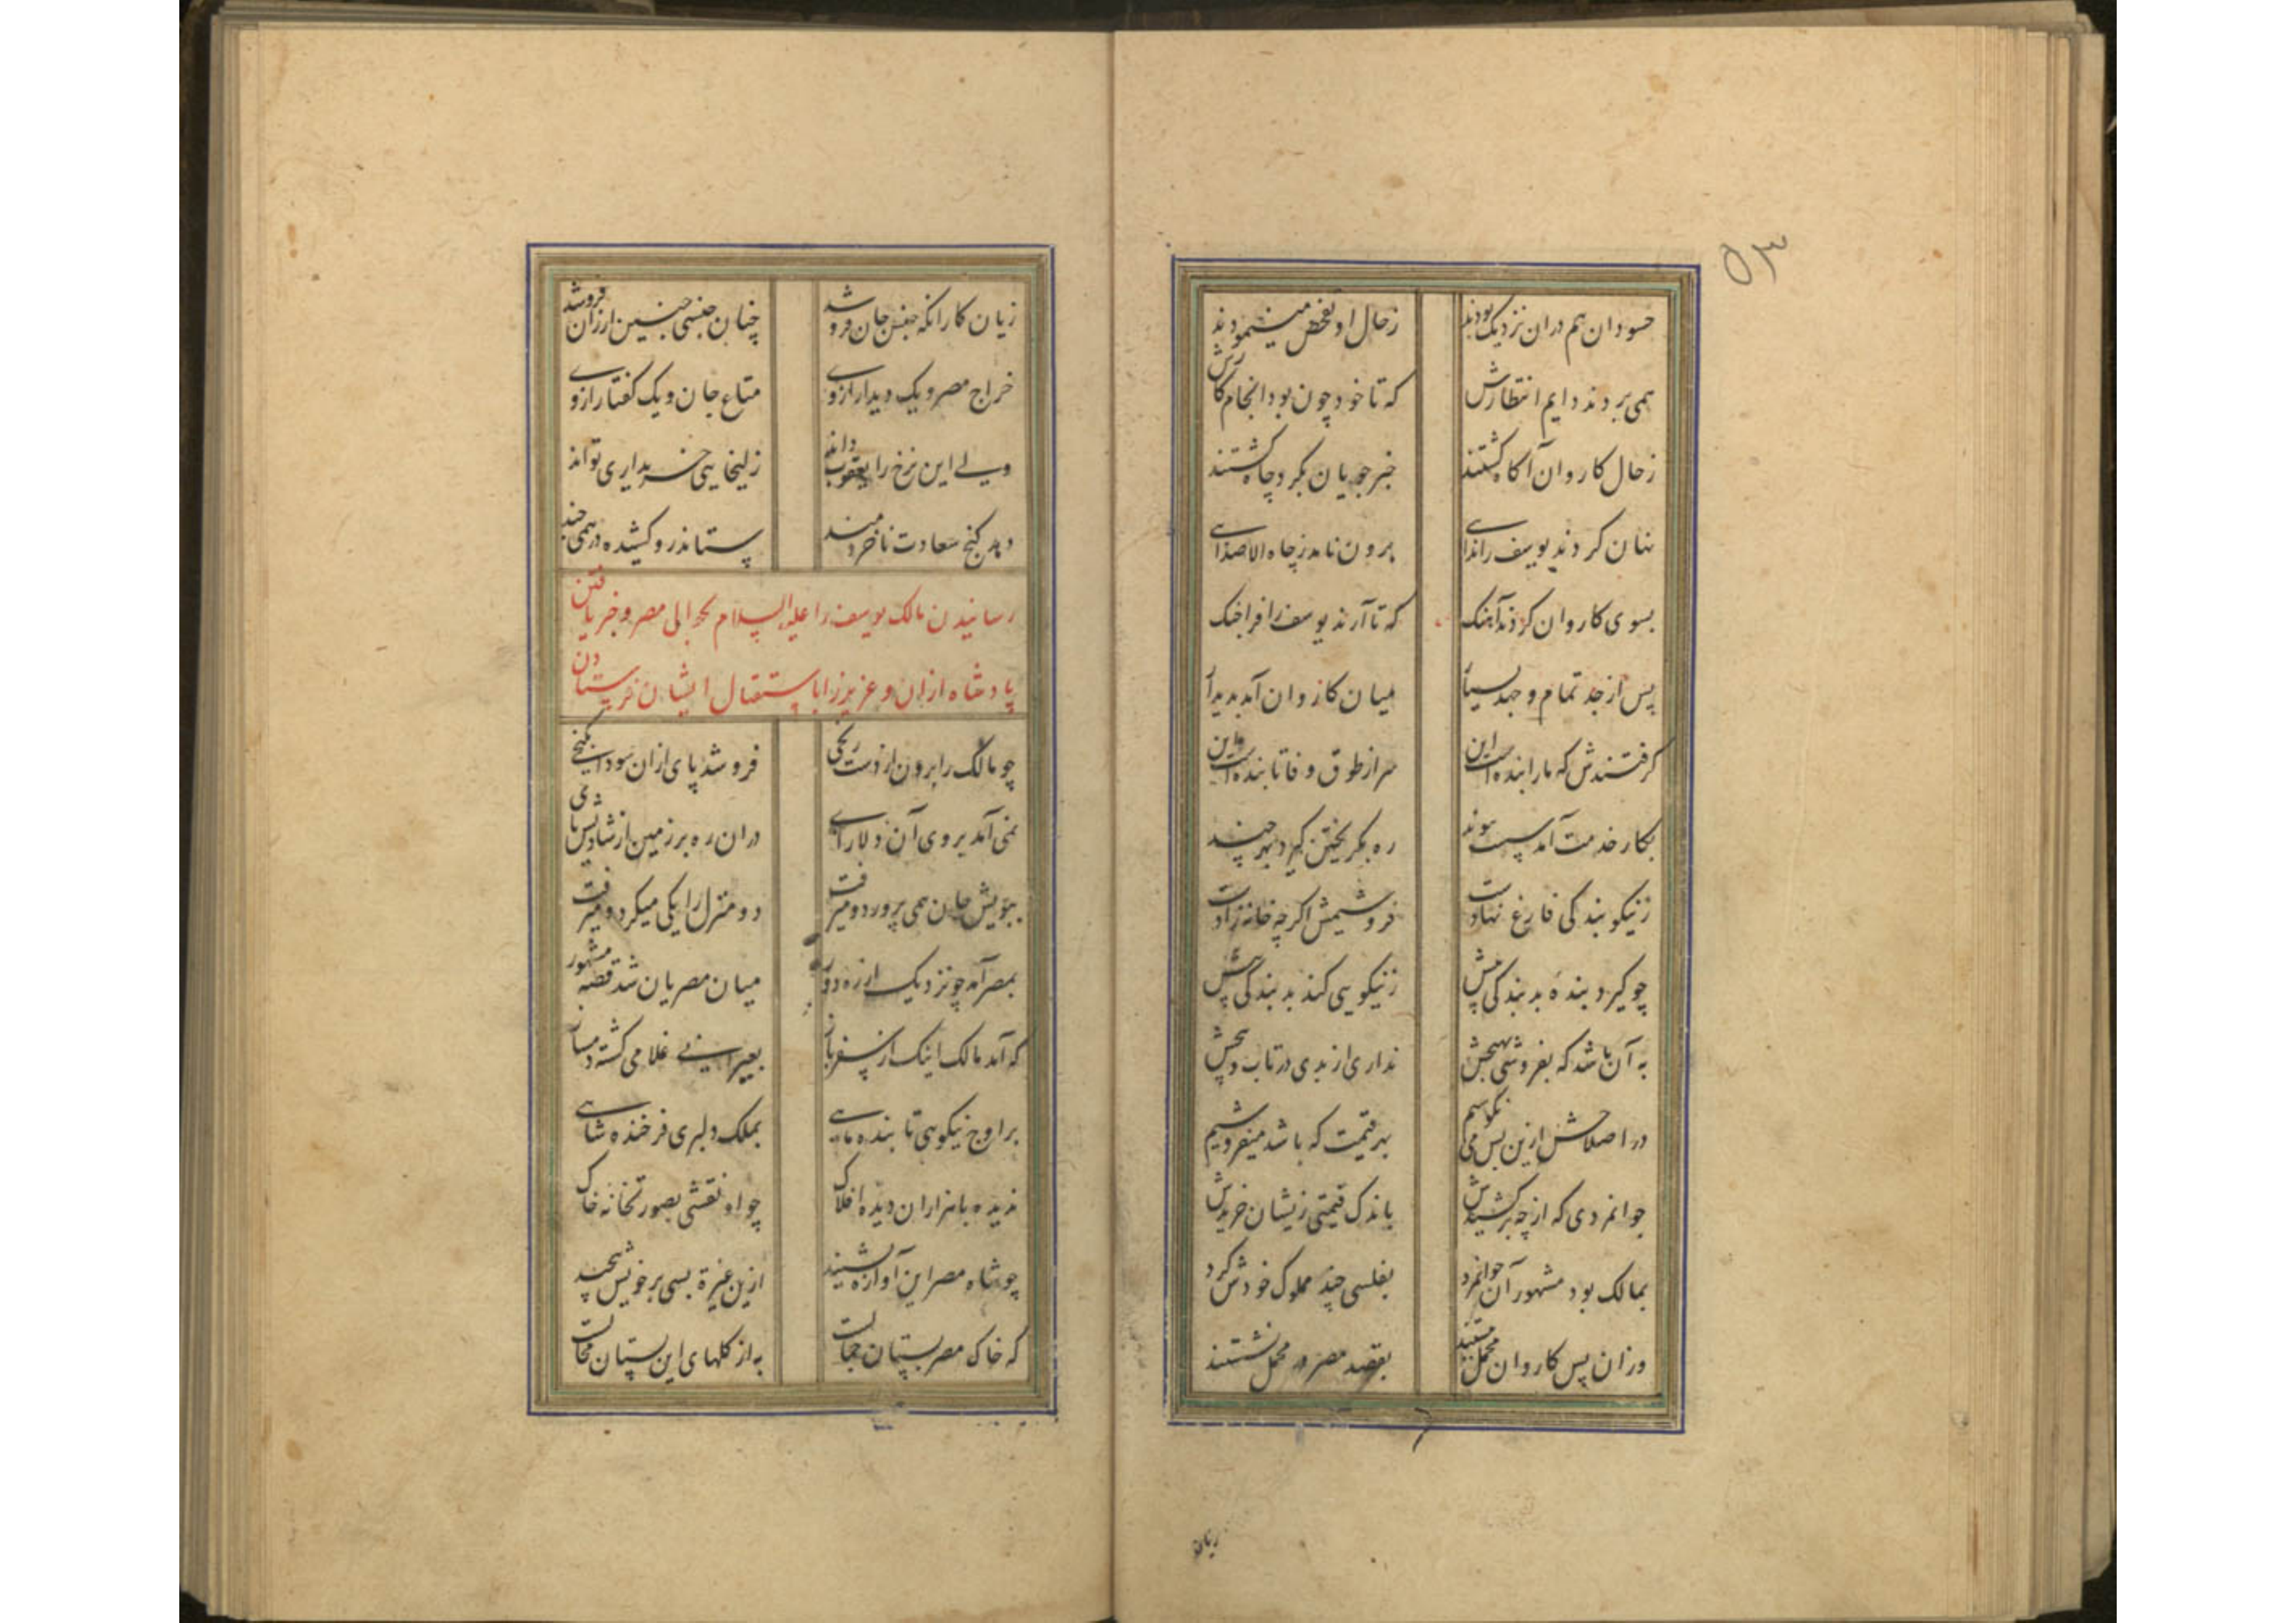 ۵۳
حسودان هم دران نزدیک بودند
زحال او تفحص مینمودند
همی بردند دایم انتظارش
که تا خود چون بود انجام کارش
زحال کاروان آکاه کشتند
خبرجویان بکرد چاه کشتند
نهان کردند یوسف را ندای
برون نامد زچاه الا صدای
بسوی کاروان کردند آهنک
که تا آرند یوسف را فراچنک
پس از جد تمام و جهد بسیار
میان کاروان آمد بدیدار
کرفتندش که ما را بنده است این
سر از طوق وفا تابنده است این
بکار خدمت آمد سست پیوند
ره بکریختن کیرد بهر چند
زنیکو بندکی فارغ نهادست
فروشیمش اکرچه خانه زادست
چو کیرد بنده بد بندکی پیش
زنیکویی کند بد بندکی بیش
به آن باشد که بفروشی بهیچش
نداری از بدی در تاب و پیچش
در اصلاحش ازین پس می نکوشیم
بهر قیمت که باشد میفروشیم
جوانمردی که از چه برکشیدش
باندک قیمتی زیشان خریدش
بمالک بود مشهور آن جوانمرد
بفلسی چند مملوک خودش کرد
وزان پس کاروان محمل ببستند
بقصد مصر در محمل نشستند
زیان
زیان کار آنکه جنس جان فروشد
چنان جنسی چنین ارزان فروشد
خراج مصر و یک دیدار ازوی
متاع جان و یک کفتار ازوی
ولی این نرخ را یعقوب داند
زلیخایی خریداری تواند
دهد کنج سعادت ناخردمند
ستاند زو کشیده درهمی چند
رسانیدن مالک یوسف را علیه السلام بحوالی مصر و خبر یافتن
پادشاه ازان و عزیز را باستقبال ایشان فرستادن
چو مالک را برون از دست رنجی
فرو شد پای ازان سودا بکنجی
نمی آمد بروی آن دلارای
دران ره بر زمین از شادیش پای
ببویش جان همی پرورد و میرفت
دو منزل را یکی میکرد و میرفت
بمصر آمد چو نزدیک از ره دور
میان مصریان شد قصه مشهور
که آمد مالک اینک از سفر باز
بعبرانی غلامی کشته دمساز
بر اوج نیکویی تابنده ماهی
بملک دلبری فرخنده شاهی
ندیده با هزاران دیده افلاک
چو او نقشی بصورتخانه خاک
چو شاه مصر این آوازه بشنید
ازین غیرة بسی بر خویش پیچید
که خاک مصر بستان جمالست
به از کلهای این بستان محالست